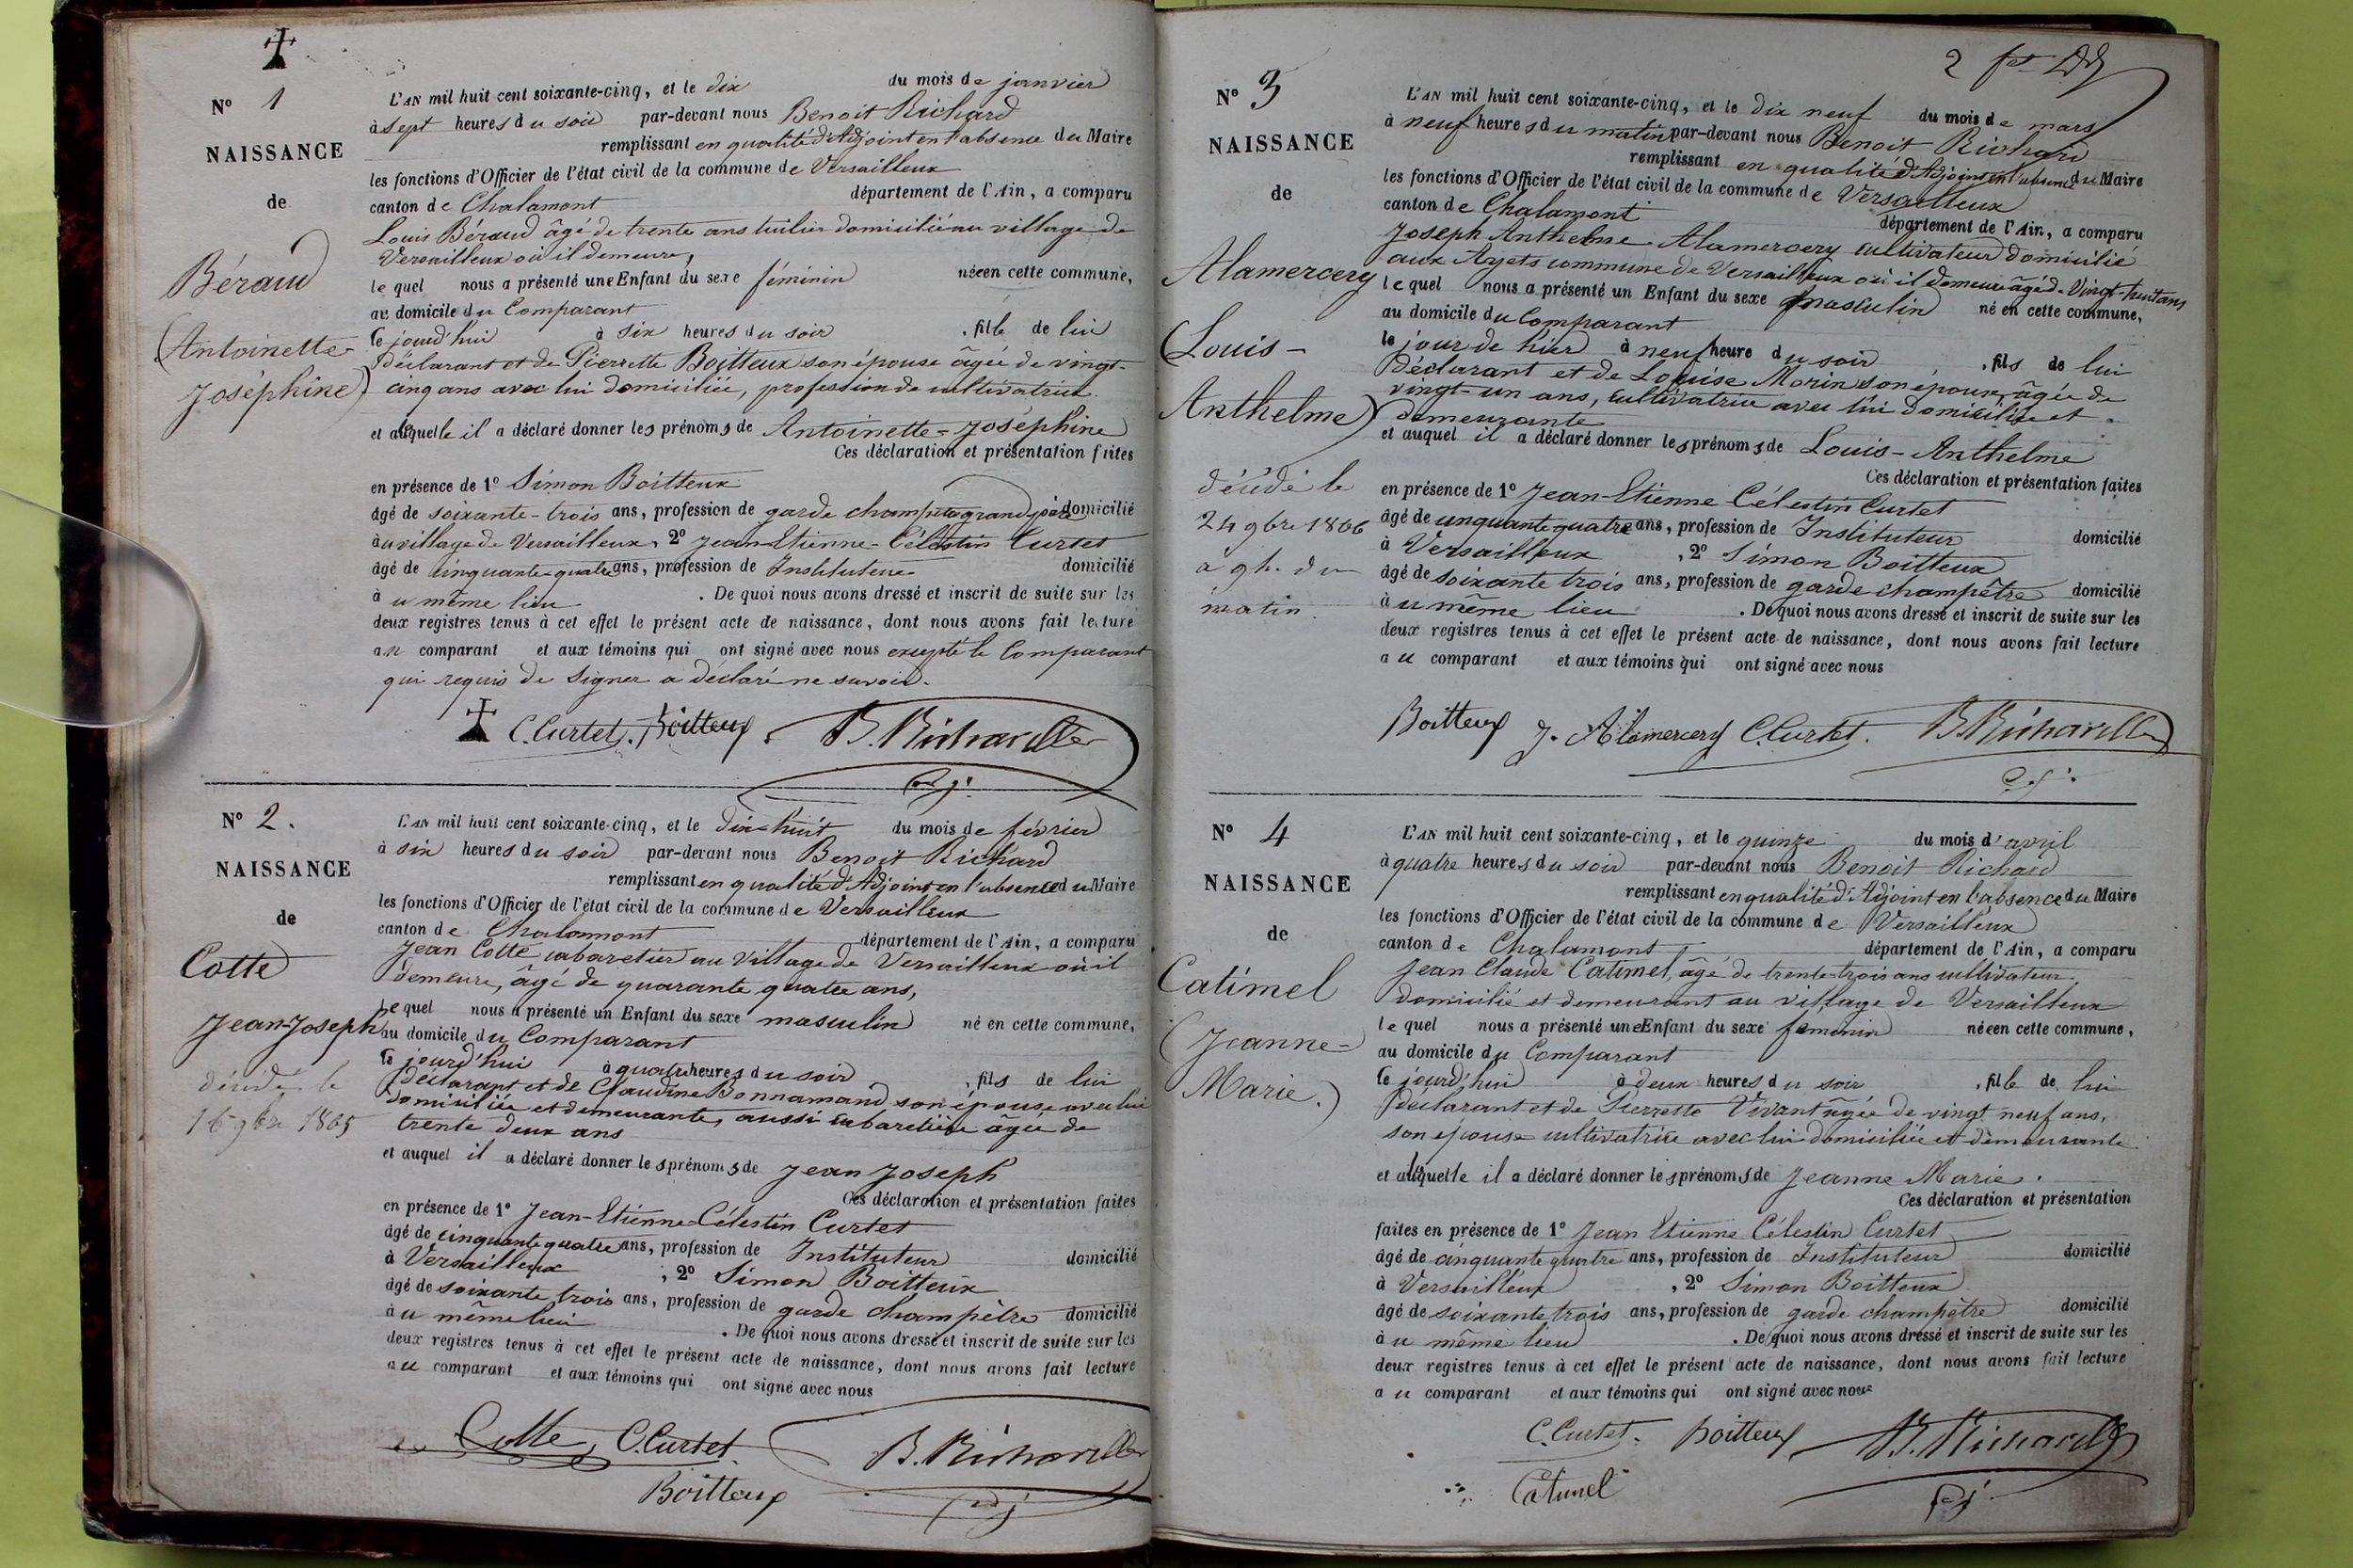 N° 1
NAISSANCE
de
Béraud
(Antoinette-
Joséphine)
L'AN mil huit cent soixante-cinq, et le dix du mois de janvier
à sept heures du soir par-devant nous Benoit Richard
remplissant en qualité d'Adjoint en l'absence du Maire
les fonctions d'Officier de l'état civil de la commune de Versailleux
canton de Chalamont département de l'Ain, a comparu
Louis Béraud âgé de trente ans tuilier domicilié au village de
Versailleux où il demeure,
lequel nous a présenté une Enfant du sexe féminin née en cette commune,
au domicile du Comparant
ce jourd'hui à six heures du soir, fille de lui
déclarant et de Pierrette Boitteux son épouse âgée de vingt-
cinq ans avec lui domiciliée, profession de cultivatrice.
et à laquelle il a déclaré donner les prénoms de Antoinette=Joséphine
Ces déclaration et présentation faites
en présence de 1° Simon Boitteux
âgé de soixante-trois ans, profession de garde champêtre grand père domicilié
au village de Versailleux, 2° Jean-Etienne-Célestin Curtet
âgé de cinquante-quatre ans, profession de Instituteur domicilié
au même lieu. De quoi nous avons dressé et inscrit de suite sur les
deux registres tenus à cet effet le présent acte de naissance, dont nous avons fait lecture
au comparant et aux témoins qui ont signé avec nous excepté le Comparant
qui requis de signer a déclaré ne savoir.
C. Curtet. Boitteux B. Richard
adj.
N° 2.
NAISSANCE
de
Cotte
Jean-Joseph
décédé le
16 9bre 1865
L'AN mil huit cent soixante-cinq, et le dix-huit du mois de février
à six heures du soir par-devant nous Benoit Richard
remplissant en qualité d'Adjoint en l'absence du Maire
les fonctions d'Officier de l'état civil de la commune de Versailleux
canton de Chalamont département de l'Ain, a comparu
Jean Cotte cabaretier au village de Versailleux où il
demeure, âgé de quarante quatre ans,
Lequel nous a présenté un Enfant du sexe masculin né en cette commune,
au domicile du Comparant
ce jourd'hui à quatre heures du soir, fils de lui
déclarant et de Claudine Bonnamand son épouse avec lui
domiciliée et demeurante, aussi cabaretière âgée de
trente deux ans
et auquel il a déclaré donner les prénoms de Jean Joseph
Ces déclaration et présentation faites
en présence de 1° Jean-Etienne-Célestin Curtet
âgé de cinquante quatre ans, profession de Instituteur domicilié
à Versailleux, 2° Simon Boitteux
âgé de soixante trois ans, profession de garde champêtre domicilié
au même lieu. De quoi nous avons dressé et inscrit de suite sur les
deux registres tenus à cet effet le présent acte de naissance, dont nous avons fait lecture
au comparant et aux témoins qui ont signé avec nous
Cotte C. Curtet. B. Richard
Boitteux adj
2
N° 3
NAISSANCE
de
Alamercery
(Louis-
Anthelme)
décédé le
24 9bre 1866
à 9 h. du
matin.
L'AN mil huit cent soixante-cinq, et le dix neuf du mois de mars
à neuf heures du matin par-devant nous Benoit Richard
remplissant en qualité d'Adjoint en l'absence du Maire
les fonctions d'Officier de l'état civil de la commune de Versailleux
canton de Chalamont département de l'Ain, a comparu
Joseph Anthelme Alamercery cultivateur domicilié
aux Ayets commune de Versailleux où il demeure âgé de Vingt-huit ans
lequel nous a présenté un Enfant du sexe masculin né en cette commune,
au domicile du Comparant
le jour de hier à neuf heure du soir, fils de lui
déclarant et de Louise Morin son épouse, âgée de
vingt-un ans, cultivatrice avec lui domiciliée et
demeurante
et auquel il a déclaré donner les prénoms de Louis-Anthelme
Ces déclaration et présentation faites
en présence de 1° Jean-Etienne Célestin Curtet
âgé de cinquante quatre ans, profession de Instituteur domicilié
à Versailleux, 2° Simon Boitteux
âgé de soixante trois ans, profession de garde champêtre domicilié
au même lieu. De quoi nous avons dressé et inscrit de suite sur les
deux registres tenus à cet effet le présent acte de naissance, dont nous avons fait lecture
au comparant et aux témoins qui ont signé avec nous
Boitteux J. Alamercery C. Curtet. B. Richard
adj.
N° 4
NAISSANCE
de
Catimel
(Jeanne-
Marie.)
L'AN mil huit cent soixante-cinq, et le quinze du mois d'avril
à quatre heures du soir par-devant nous Benoit Richard
remplissant en qualité d'Adjoint en l'absence du Maire
les fonctions d'Officier de l'état civil de la commune de Versailleux
canton de Chalamont département de l'Ain, a comparu
Jean Claude Catimel, âgé de trente-trois ans cultivateur
domicilié et demeurant au village de Versailleux
lequel nous a présenté une Enfant du sexe féminin née en cette commune,
au domicile du Comparant
ce jourd'hui à deux heures du soir, fille de lui
déclarant et de Pierrette Vivant âgée de vingt neuf ans,
son épouse cultivatrice avec lui domiciliée et demeurante
et à laquelle il a déclaré donner les prénoms de Jeanne Marie.
Ces déclaration et présentation
faites en présence de 1° Jean Etienne Célestin Curtet
âgé de cinquante quatre ans, profession de Instituteur domicilié
à Versailleux, 2° Simon Boitteux
âgé de soixante trois ans, profession de garde champêtre domicilié
au même lieu. De quoi nous avons dressé et inscrit de suite sur les
deux registres tenus à cet effet le présent acte de naissance, dont nous avons fait lecture
au comparant et aux témoins qui ont signé avec nous
C. Curtet. Boitteux B. Richard
Catimel adj.